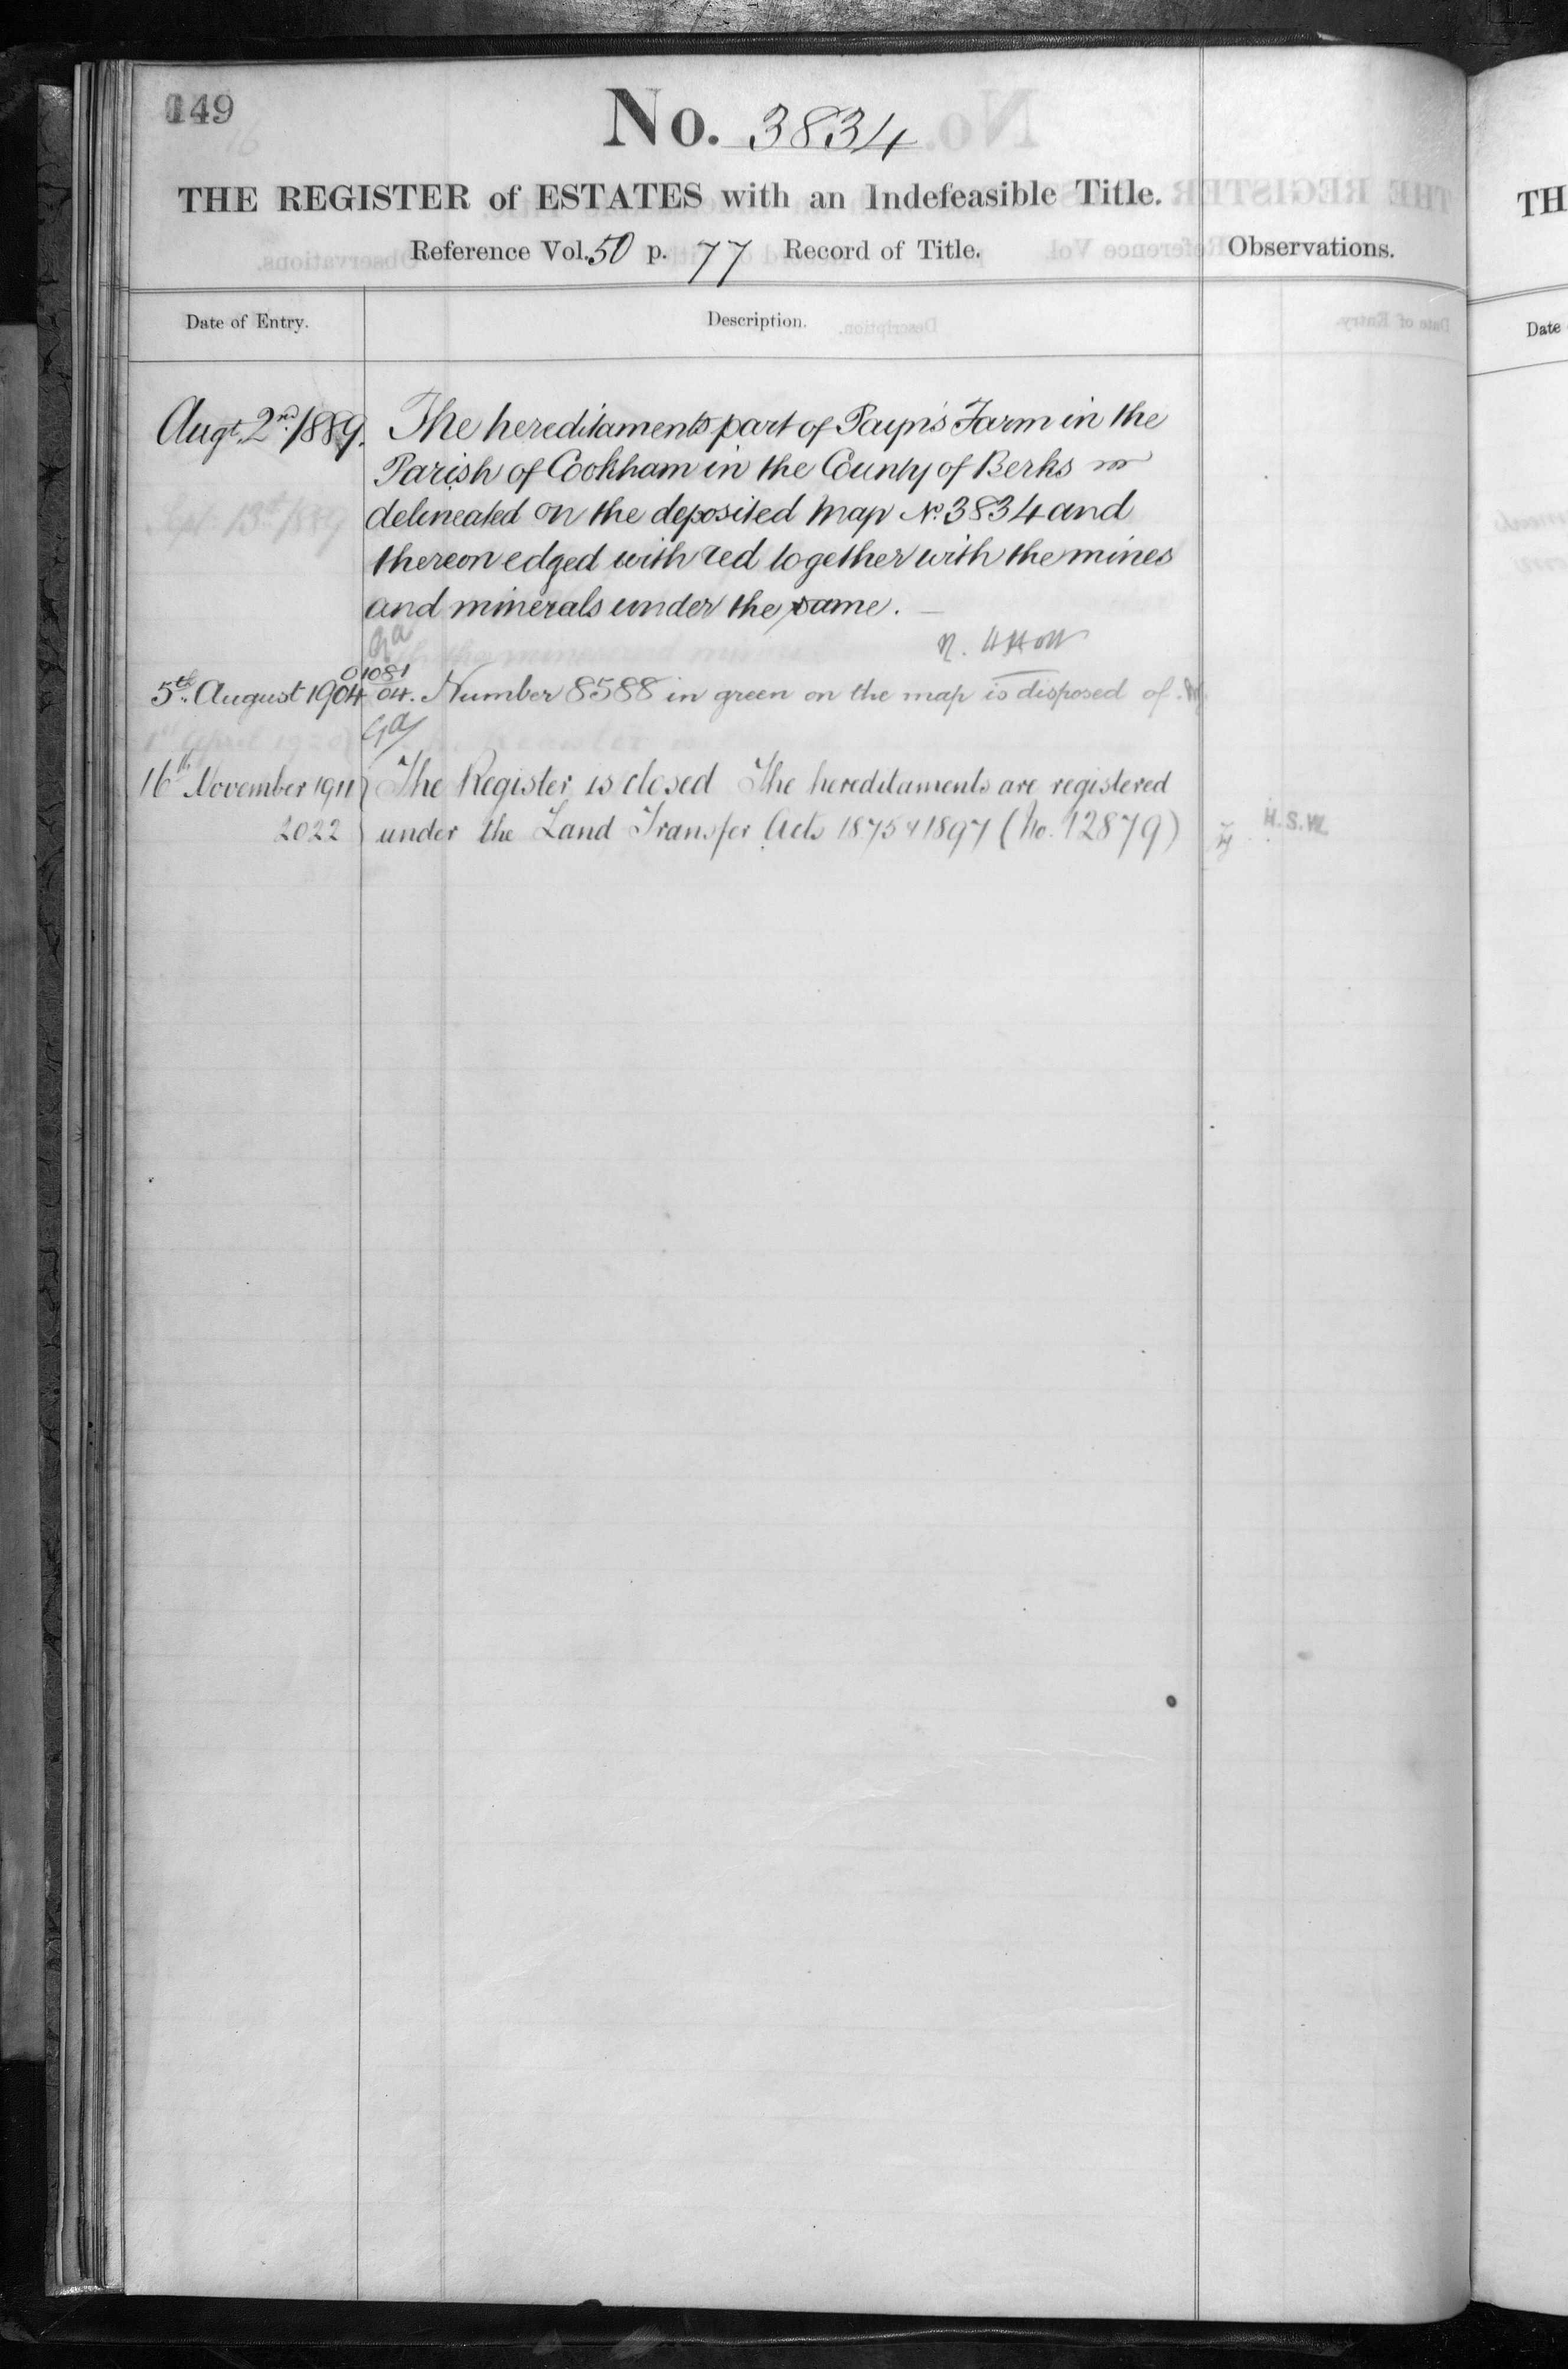 149
No. 3834
THE REGISTER of ESTATES with an Indefeasible Title.
Reference Vol. 50 p. 77 Record of Title.
Observations.
Date of Entry.
Description.
Augt. 2nd 1889. The hereditaments part of Payn's Farm in the
Parish of Cookham in the County of Berks
delineated on the deposited Map No. 3834 and
thereon edged with red together with the mines
and minerals under the same.
01081
5th August 1904 04. Number 8588 in green on the map is disposed of.
16th November 1911 The Register is closed The hereditaments are registered
2022 under the Land Transfer Acts 1875 & 1897 (No. 12879)
H.S.W.
TH
Date